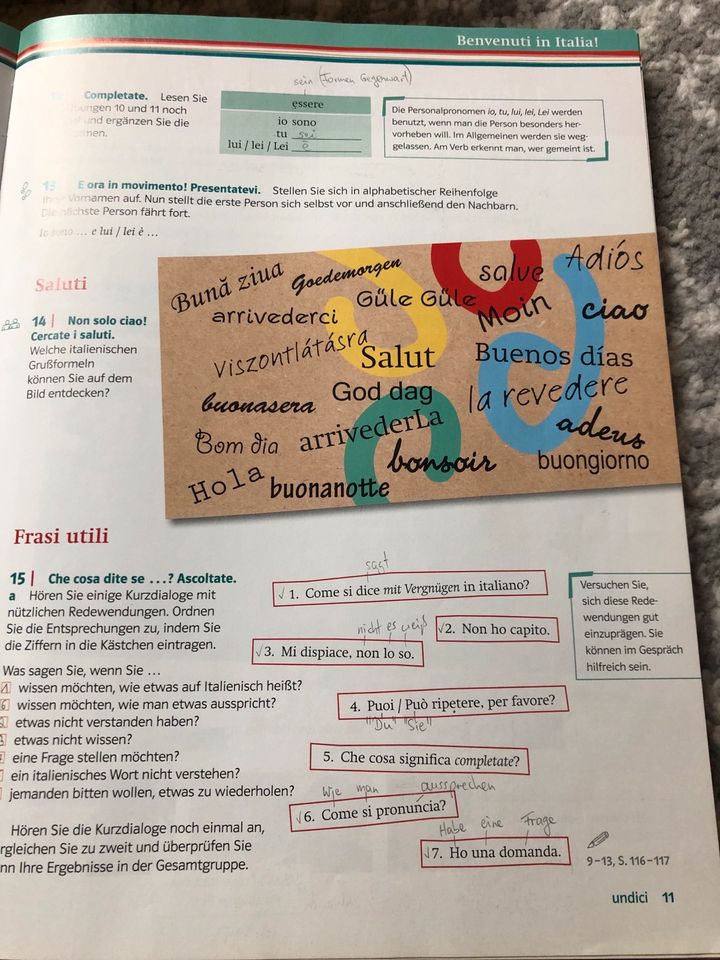 Benvenuti in Italia!
sein (Formen Gegenwart)
Completate. Lesen Sie
ungen 10 und 11 noch
und ergänzen Sie die
essere
io sono
tu sei
lui / lei / Lei è
Die Personalpronomen io, tu, lui, lei, Lei werden
benutzt, wenn man die Person besonders her-
vorheben will. Im Allgemeinen werden sie weg-
gelassen. Am Verb erkennt man, wer gemeint ist.
13 E ora in movimento! Presentatevi. Stellen Sie sich in alphabetischer Reihenfolge
Vornamen auf. Nun stellt die erste Person sich selbst vor und anschließend den Nachbarn.
Die nächste Person fährt fort.
Io sono ... e lui / lei è ...
Saluti
14 | Non solo ciao!
Cercate i saluti.
Welche italienischen
Grußformeln
können Sie auf dem
Bild entdecken?
Bună ziua
Goedemorgen
salve
Adiós
arrivederci
Güle Güle
Moin
ciao
viszontlátásra
Salut
Buenos días
buonasera
God dag
la revedere
Bom dia
arrivederLa
adeus
Hola
bonsoir
buongiorno
buonanotte
Frasi utili
15 | Che cosa dite se ...? Ascoltate.
a Hören Sie einige Kurzdialoge mit
nützlichen Redewendungen. Ordnen
Sie die Entsprechungen zu, indem Sie
die Ziffern in die Kästchen eintragen.
sagt
√ 1. Come si dice mit Vergnügen in italiano?
√2. Non ho capito.
nicht es weiß
√3. Mi dispiace, non lo so.
Versuchen Sie,
sich diese Rede-
wendungen gut
einzuprägen. Sie
können im Gespräch
hilfreich sein.
Was sagen Sie, wenn Sie ...
1 wissen möchten, wie etwas auf Italienisch heißt?
6 wissen möchten, wie man etwas ausspricht?
etwas nicht verstanden haben?
etwas nicht wissen?
eine Frage stellen möchten?
ein italienisches Wort nicht verstehen?
jemanden bitten wollen, etwas zu wiederholen?
4. Puoi / Può ripetere, per favore?
"Du" "Sie"
5. Che cosa significa completate?
Wie man aussprechen
√6. Come si pronuncia?
Habe eine Frage
√7. Ho una domanda.
Hören Sie die Kurzdialoge noch einmal an,
rgleichen Sie zu zweit und überprüfen Sie
nn Ihre Ergebnisse in der Gesamtgruppe.
9–13, S. 116–117
undici 11